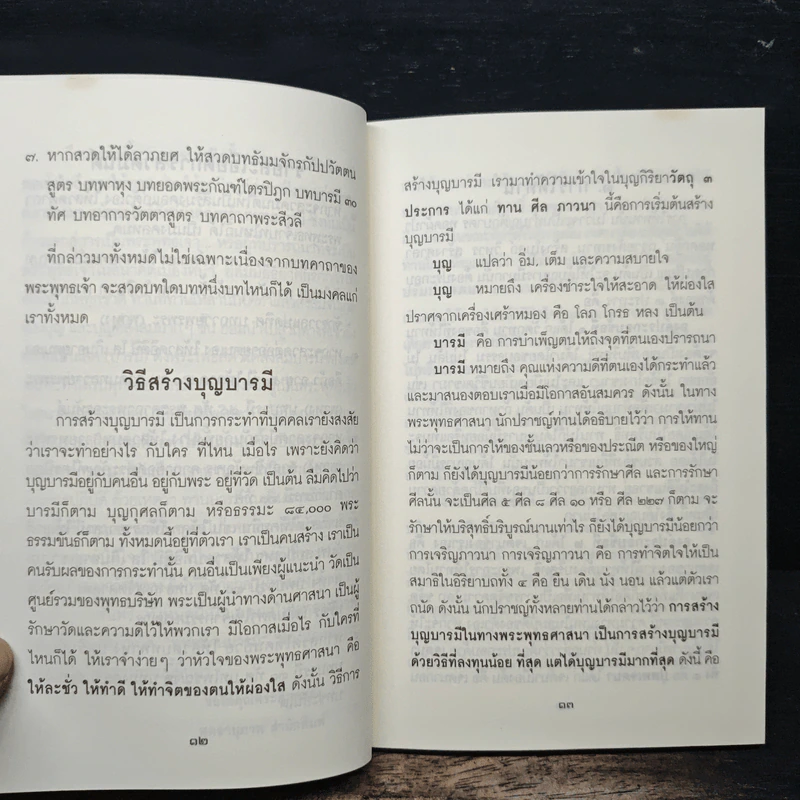 ๗. หากสวดให้ได้ลาภยศ ให้สวดบทธัมมจักรกัปปวัตตน
สูตร บทพาหุง บทยอดพระกัณฑ์ไตรปิฎก บทบารมี ๓๐
ทัศ บทอาการวัตตาสูตร บทคาถาพระสีวลี
ที่กล่าวมาทั้งหมดไม่ใช่เฉพาะเนื่องจากบทคาถาของ
พระพุทธเจ้า จะสวดบทใดบทหนึ่งบทไหนก็ได้ เป็นมงคลแก่
เราทั้งหมด
วิธีสร้างบุญบารมี
การสร้างบุญบารมี เป็นการกระทำที่บุคคลเรายังสงสัย
ว่าเราจะทำอย่างไร กับใคร ที่ไหน เมื่อไร เพราะยังคิดว่า
บุญบารมีอยู่กับคนอื่น อยู่กับพระ อยู่ที่วัด เป็นต้น ลืมคิดไปว่า
บารมีก็ตาม บุญกุศลก็ตาม หรือธรรมะ ๘๔,๐๐๐ พระ
ธรรมขันธ์ก็ตาม ทั้งหมดนี้อยู่ที่ตัวเรา เราเป็นคนสร้าง เราเป็น
คนรับผลของการกระทำนั้น คนอื่นเป็นเพียงผู้แนะนำ วัดเป็น
ศูนย์รวมของพุทธบริษัท พระเป็นผู้นำทางด้านศาสนา เป็นผู้
รักษาวัดและความดีไว้ให้พวกเรา มีโอกาสเมื่อไร กับใครที่
ไหนก็ได้ ให้เราจำง่ายๆ ว่าหัวใจของพระพุทธศาสนา คือ
ให้ละชั่ว ให้ทำดี ให้ทำจิตของตนให้ผ่องใส ดังนั้น วิธีการ
๑๒
สร้างบุญบารมี เรามาทำความเข้าใจในบุญกิริยาวัตถุ ๓
ประการ ได้แก่ ทาน ศีล ภาวนา นี้คือการเริ่มต้นสร้าง
บุญบารมี
บุญ แปลว่า อิ่ม, เต็ม และความสบายใจ
บุญ หมายถึง เครื่องชำระใจให้สะอาด ให้ผ่องใส
ปราศจากเครื่องเศร้าหมอง คือ โลภ โกรธ หลง เป็นต้น
บารมี คือ การบำเพ็ญตนให้ถึงจุดที่ตนเองปรารถนา
บารมี หมายถึง คุณแห่งความดีที่ตนเองได้กระทำแล้ว
และมาสนองตอบเราเมื่อมีโอกาสอันสมควร ดังนั้น ในทาง
พระพุทธศาสนา นักปราชญ์ท่านได้อธิบายไว้ว่า การให้ทาน
ไม่ว่าจะเป็นการให้ของชั้นเลวหรือของประณีต หรือของใหญ่
ก็ตาม ก็ยังได้บุญบารมีน้อยกว่าการรักษาศีล และการรักษา
ศีลนั้น จะเป็นศีล ๕ ศีล ๘ ศีล ๑๐ หรือ ศีล ๒๒๗ ก็ตาม จะ
รักษาให้บริสุทธิ์บริบูรณ์นานเท่าไร ก็ยังได้บุญบารมีน้อยกว่า
การเจริญภาวนา การเจริญภาวนา คือ การทำจิตใจให้เป็น
สมาธิในอิริยาบถทั้ง ๔ คือ ยืน เดิน นั่ง นอน แล้วแต่ตัวเรา
ถนัด ดังนั้น นักปราชญ์ทั้งหลายท่านได้กล่าวไว้ว่า การสร้าง
บุญบารมีในทางพระพุทธศาสนา เป็นการสร้างบุญบารมี
ด้วยวิธีที่ลงทุนน้อย ที่สุด แต่ได้บุญบารมีมากที่สุด ดังนี้ คือ
๑๓